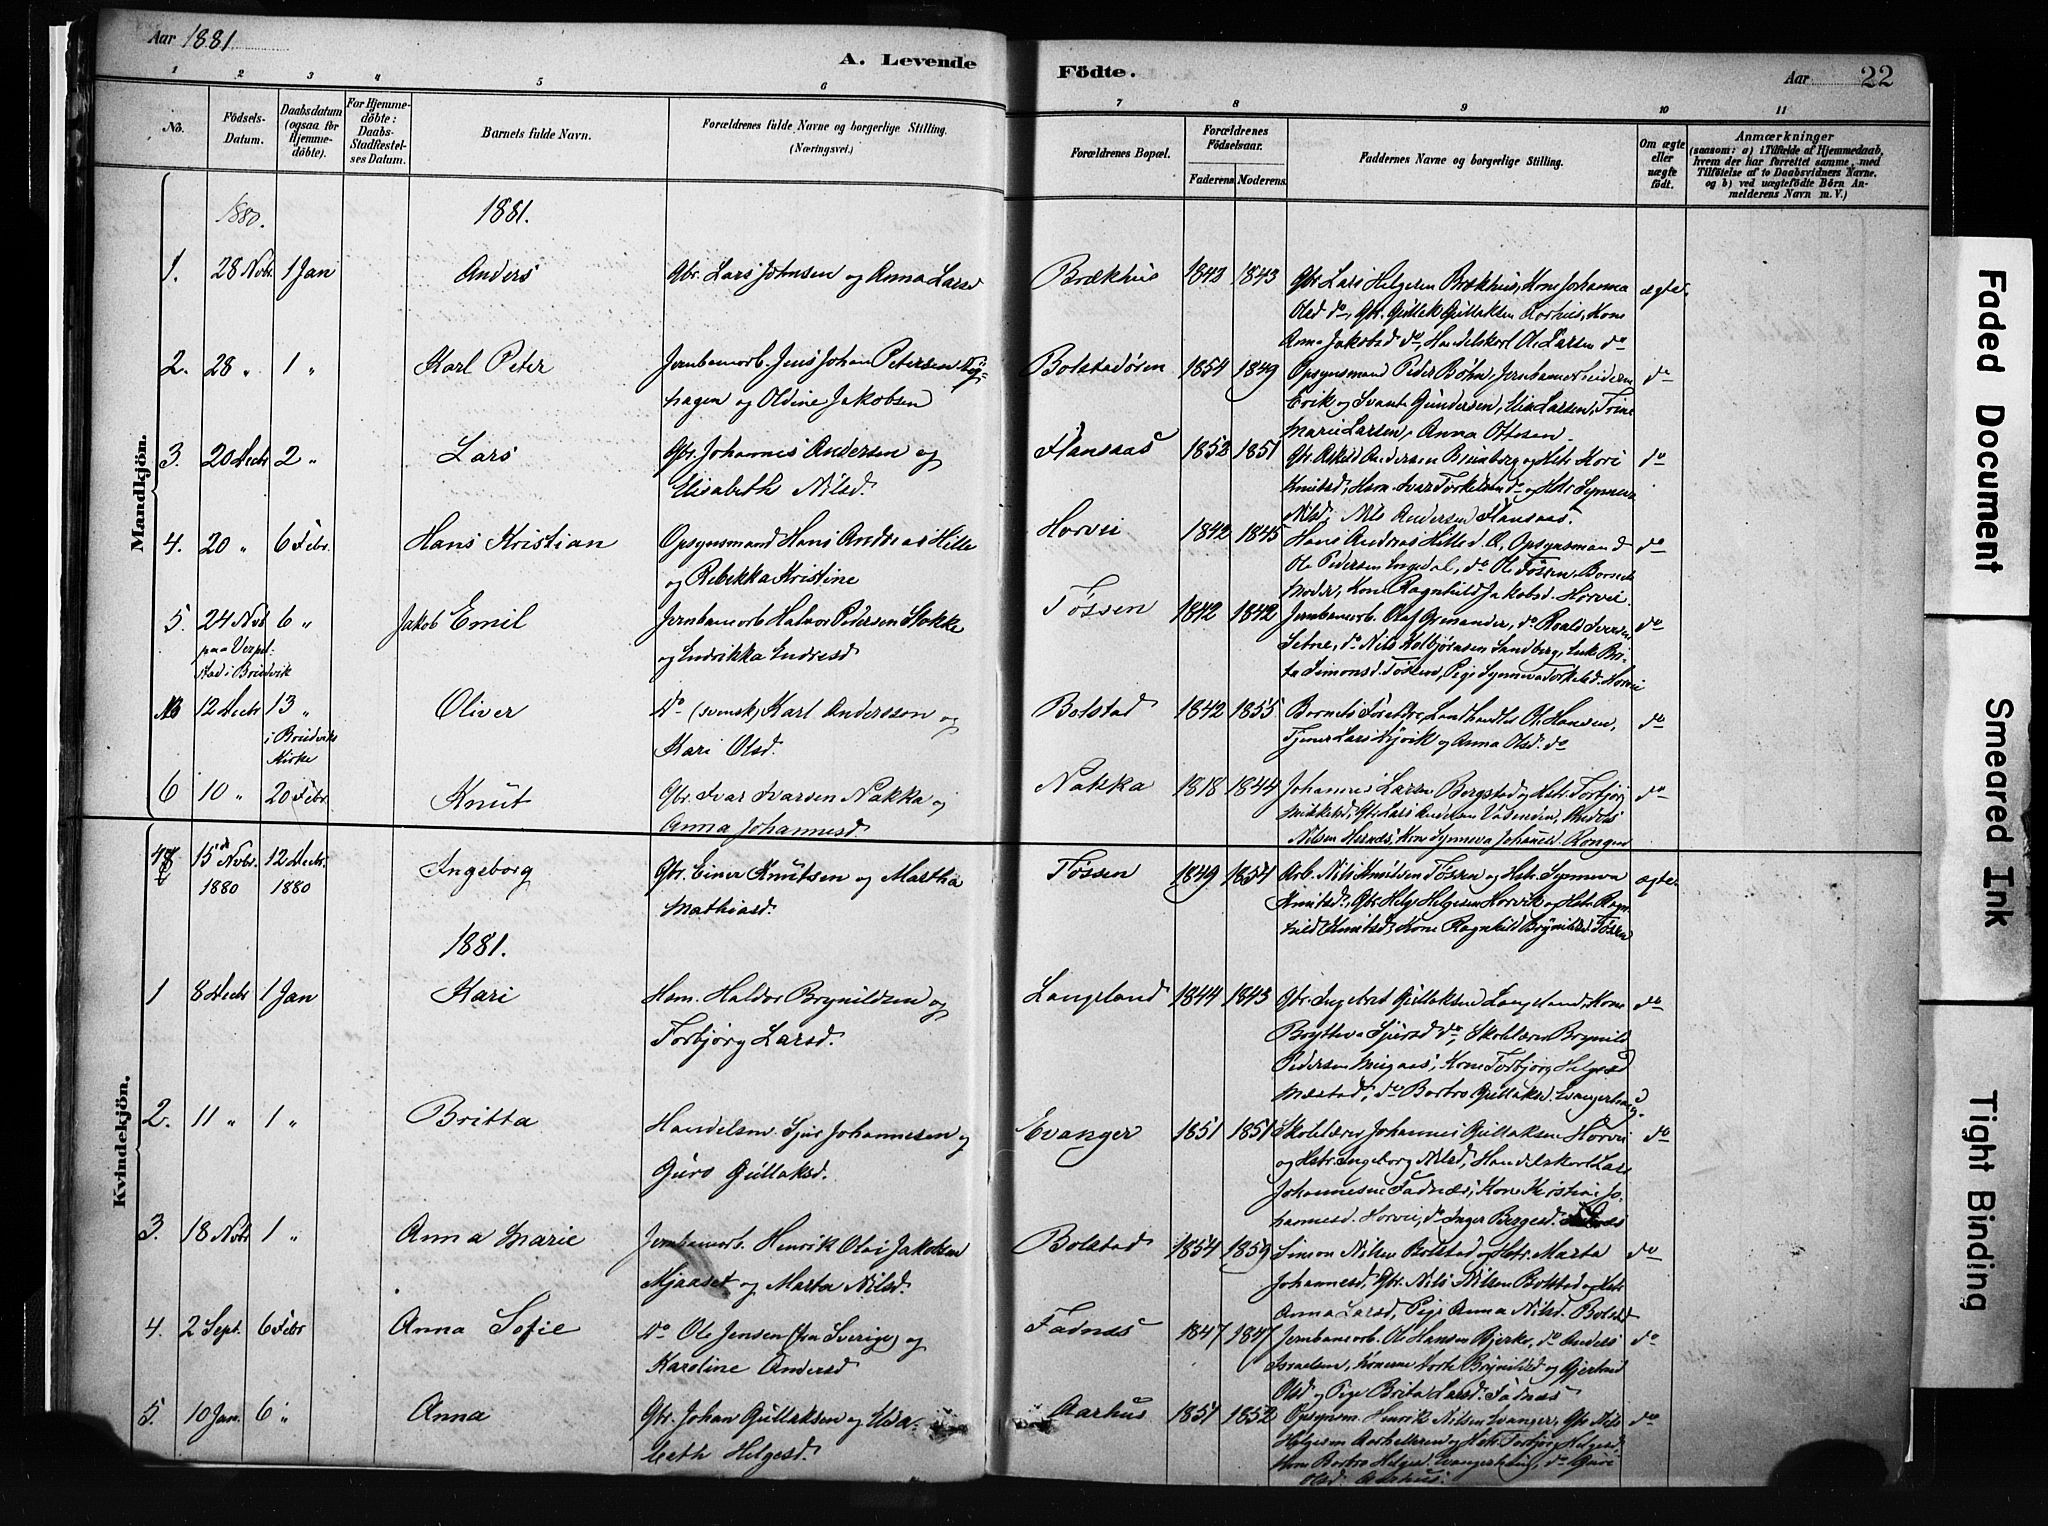 Aar 1881
A. Levende
Födte.
Aar 22
1 2 3 4 5 6 7 8 9 10 11
No.
Födsels-
Datum.
Daabsdatum
(ogsaa for
Hjemme-
döbte).
For Hjemme-
döbte:
Daabs-
Stadfæstel-
ses Datum.
Barnets fulde Navn.
Forældrenes fulde Navne og borgerlige Stilling.
(Næringsvei.)
Forældrenes Bopæl.
Forældrenes
Födselsaar.
Faderens
Moderens.
Faddernes Navne og borgerlige Stilling.
Om ægte
eller
uægte
födt.
Anmærkninger
(saasom: a) i Tilfælde af Hjemmedaab,
hvem der har forrettet samme, med
Tilföielse af to Daabsvidners Navne.
og b) ved uægtefödte Börn An-
melderens Navn m. V.)
Mandkjön.
1880. 1881.
1. 28 Novbr. 1 Jan Anders Gbr. Lars Johnsen og Anna Larsd Brækhus 1842 1843 Gbr Lars Helgesen Brækhus, Kone Johanna ægte.
Olsd do, Gbr. Gullek Gullaksen Aarhus, Kone
Anna Jakobsd do, Handelskarl Ole Larsen do
2. 28 " 1 " Karl Peter Jernbanearb. Jens Johan Petersen
hagen og Oldine Jakobsen Bolstadören 1854 1849 Opsynsmand Peder Bøhm, Jernbanearbeiderne do
Erik og Svante Gundersen, Elise Larsen, Trine
Marie Larsen, Anna Ottesen.
3. 20 Decbr 2 " Lars Gbr. Johannes Andersen og
Elisabeth Nilsd. Flansaas 1852 1851 Gbr. Askild Andersen og Hstr. Kari do
Knutsd, Ivar Torkelsen do og Hstr Synneve
Nilsd, Nils Andersen Flansaas.
4. 20 " 6 Febr. Hans Kristian Opsynsmand Hans Andreas Hille
og Rebekka Kristine Horvei 1842 1845 Hans Andreas Hille d. Æ, Opsynsmand do
Ole Pedersen Engedal, do Ole Tøssen, Barnets
Moder, Kone Ragnhild Jakobsd. Horvei.
5. 24 Nov. 6 " Jakob Emil Jernbanearb Halvor Pedersen Stokke
paa
stad i Breidvik
og Endrikka Endresd Tøssen 1842 1842 Jernbanearb. Olaf do Roald Iversen do
Setne, do Nils Kolbjørnsen Sandberg, Enke Bri-
ta Simonsd. Tøssen, Pige Synneva Torkelsd. Horvei
12 Decbr 13 " Oliver Do (svensk) Karl Andersson og
i Breidviks
Kirke
Kari Olsd. Bolstad 1842 1855 Barnets Forældre, Landhandler Ol. Hansen, do
Tjener Lars og Anna Olsd. do
6 10 " 20 Febr. Knut Gbr. Ivar Ivarsen Nakka og
Anna Johannesd. Nakka 1818 1844 Johannes Larsen Bergstad og Hstr. Torbjør do
Mikkelsd, Gbr. Lars Andersen Vasenden, Andreas
Nilsen Hernes, Kone Synneva Johannesd. Rongen
Kvindekjön.
15de Novbr. 12 Decbr. Ingeborg Gbr. Einer Knutsen og Martha
1880 1880
Mathiasd. Tøssen 1849 1854 Arb. Nils Knutsen Tøssen og Hstr. Synneva ægte
Knutsd, Gbr Helge Helgesen Horvik og Hstr. Ragn-
hild Knutsd, Kone Ragnhild Brynildsd. Tøssen
1881.
1 8 Decbr 1 Jan Kari Hsm. Haldor Brynildsen og
Torbjørg Larsd. Langeland 1844 1843 Gbr. Ingebret Gullaksen Langeland, Kone do
Brytteva Sjursd do, Skolelærer Brynild
Pedersen Mugaas, Kone Torbjørg Helgesd
Mæstad, do Bartro Gullaksd. Evangerberg.
2. 11 " 1 " Britta Handelsm. Sjur Johannesen og
Guro Gullaksd. Evanger 1851 1851 Skolelærer Johannes Gullaksen Horvei do
og Hstr. Ingeborg Nilsd, Handelskarl Lars
Johannesen Fadnes, Kone Kristine Jo-
hannesd. Horvei, do Inger Bergesd.
3. 18 Novbr 1 " Anna Marie Jernbanearb. Henrik Olai Jakobsen
Mjaaset og Marta Nilsd. Bolstad 1854 1859 Simon Nilsen Bolstad og Hstr. Marta do
Johannesd, Gbr. Nils Nilsen Bolstad og Hstr
Anna Larsd, Pige Anna Nilsd. Bolstad
4. 2 Sept. 6 Febr Anna Sofie Do Ole Jensen (fra Sverige) og
Karoline Andersd Fadnes 1847 1847 Jernbanearb. Ole Hansen Bjerke, do Anders do
Israelsen, Konerne Marte Brynildsd og Gjertrud
Olsd og Pige Brita Larsd. Fadnes
5. 10 Jan. 6 " Anna Gbr. Johan Gullaksen og Elisa-
beth Helgesd. Aarhus 1851 1852 Opsynsm. Henrik Nilsen Evanger, Gbr Nils do
Helgesen og Hstr. Torbjørg Helgesd,
Kone Bartro Helgesd. Evangerberg, do Guri
Olsd. Aarhus.
Faded Document
Smeared Ink
Tight Binding